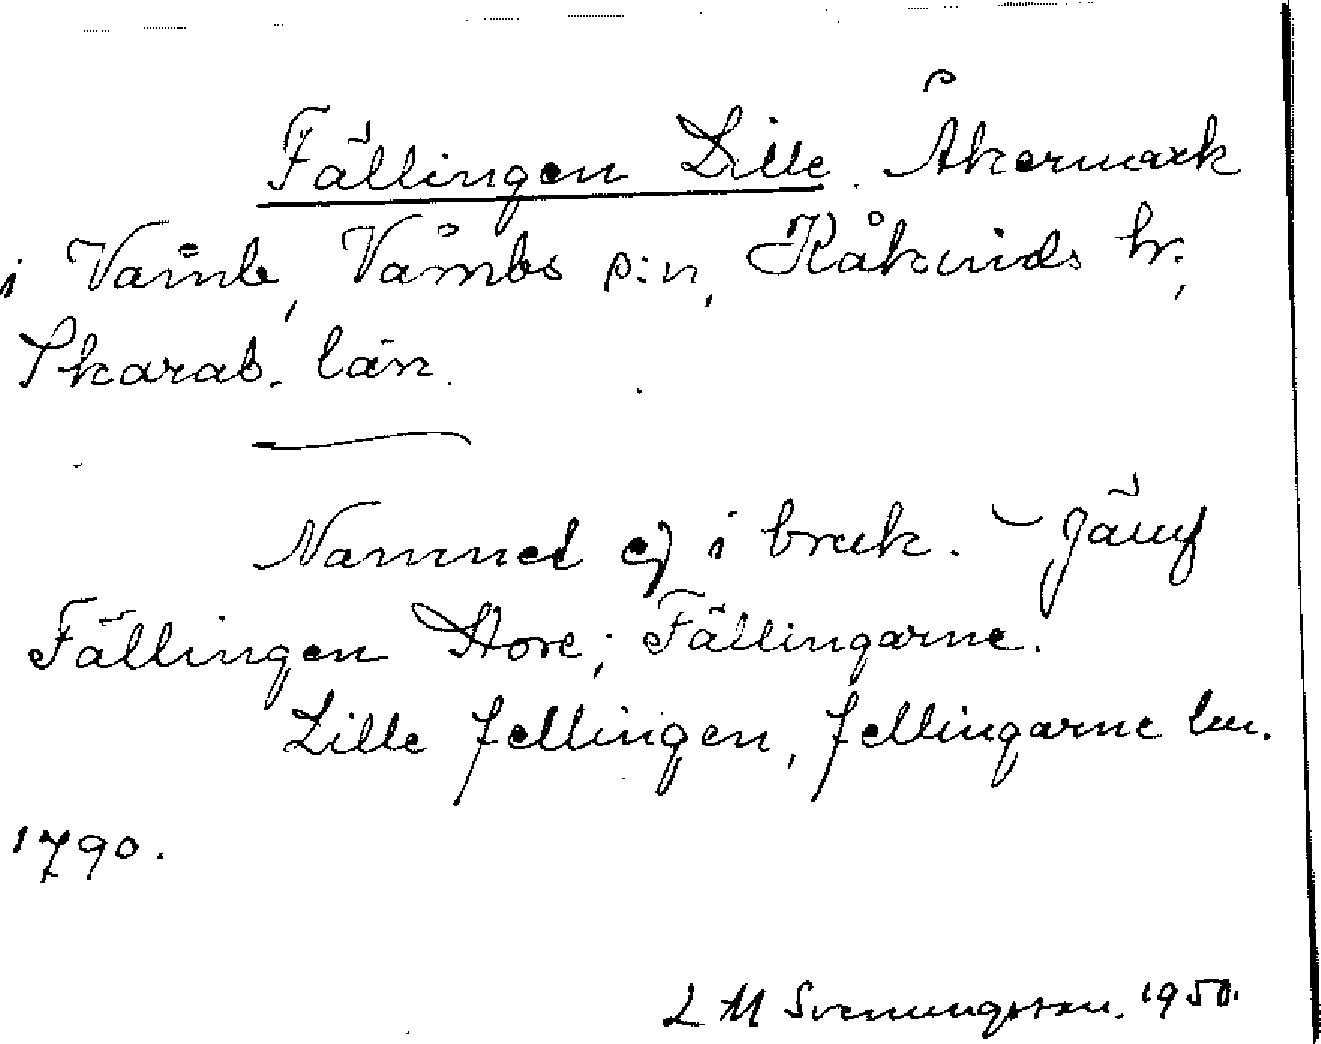 Fällingen Lille. Åkermark
i Våmb, Våmbs s:n, Kåkinds hr.,
Skarab. län.
Namnet ej i bruk. – Jämf
Fällingen Store; Fällingarne.
Lille fellingen, fellingarne lm.
1790.
L M Svenungsson. 1950.